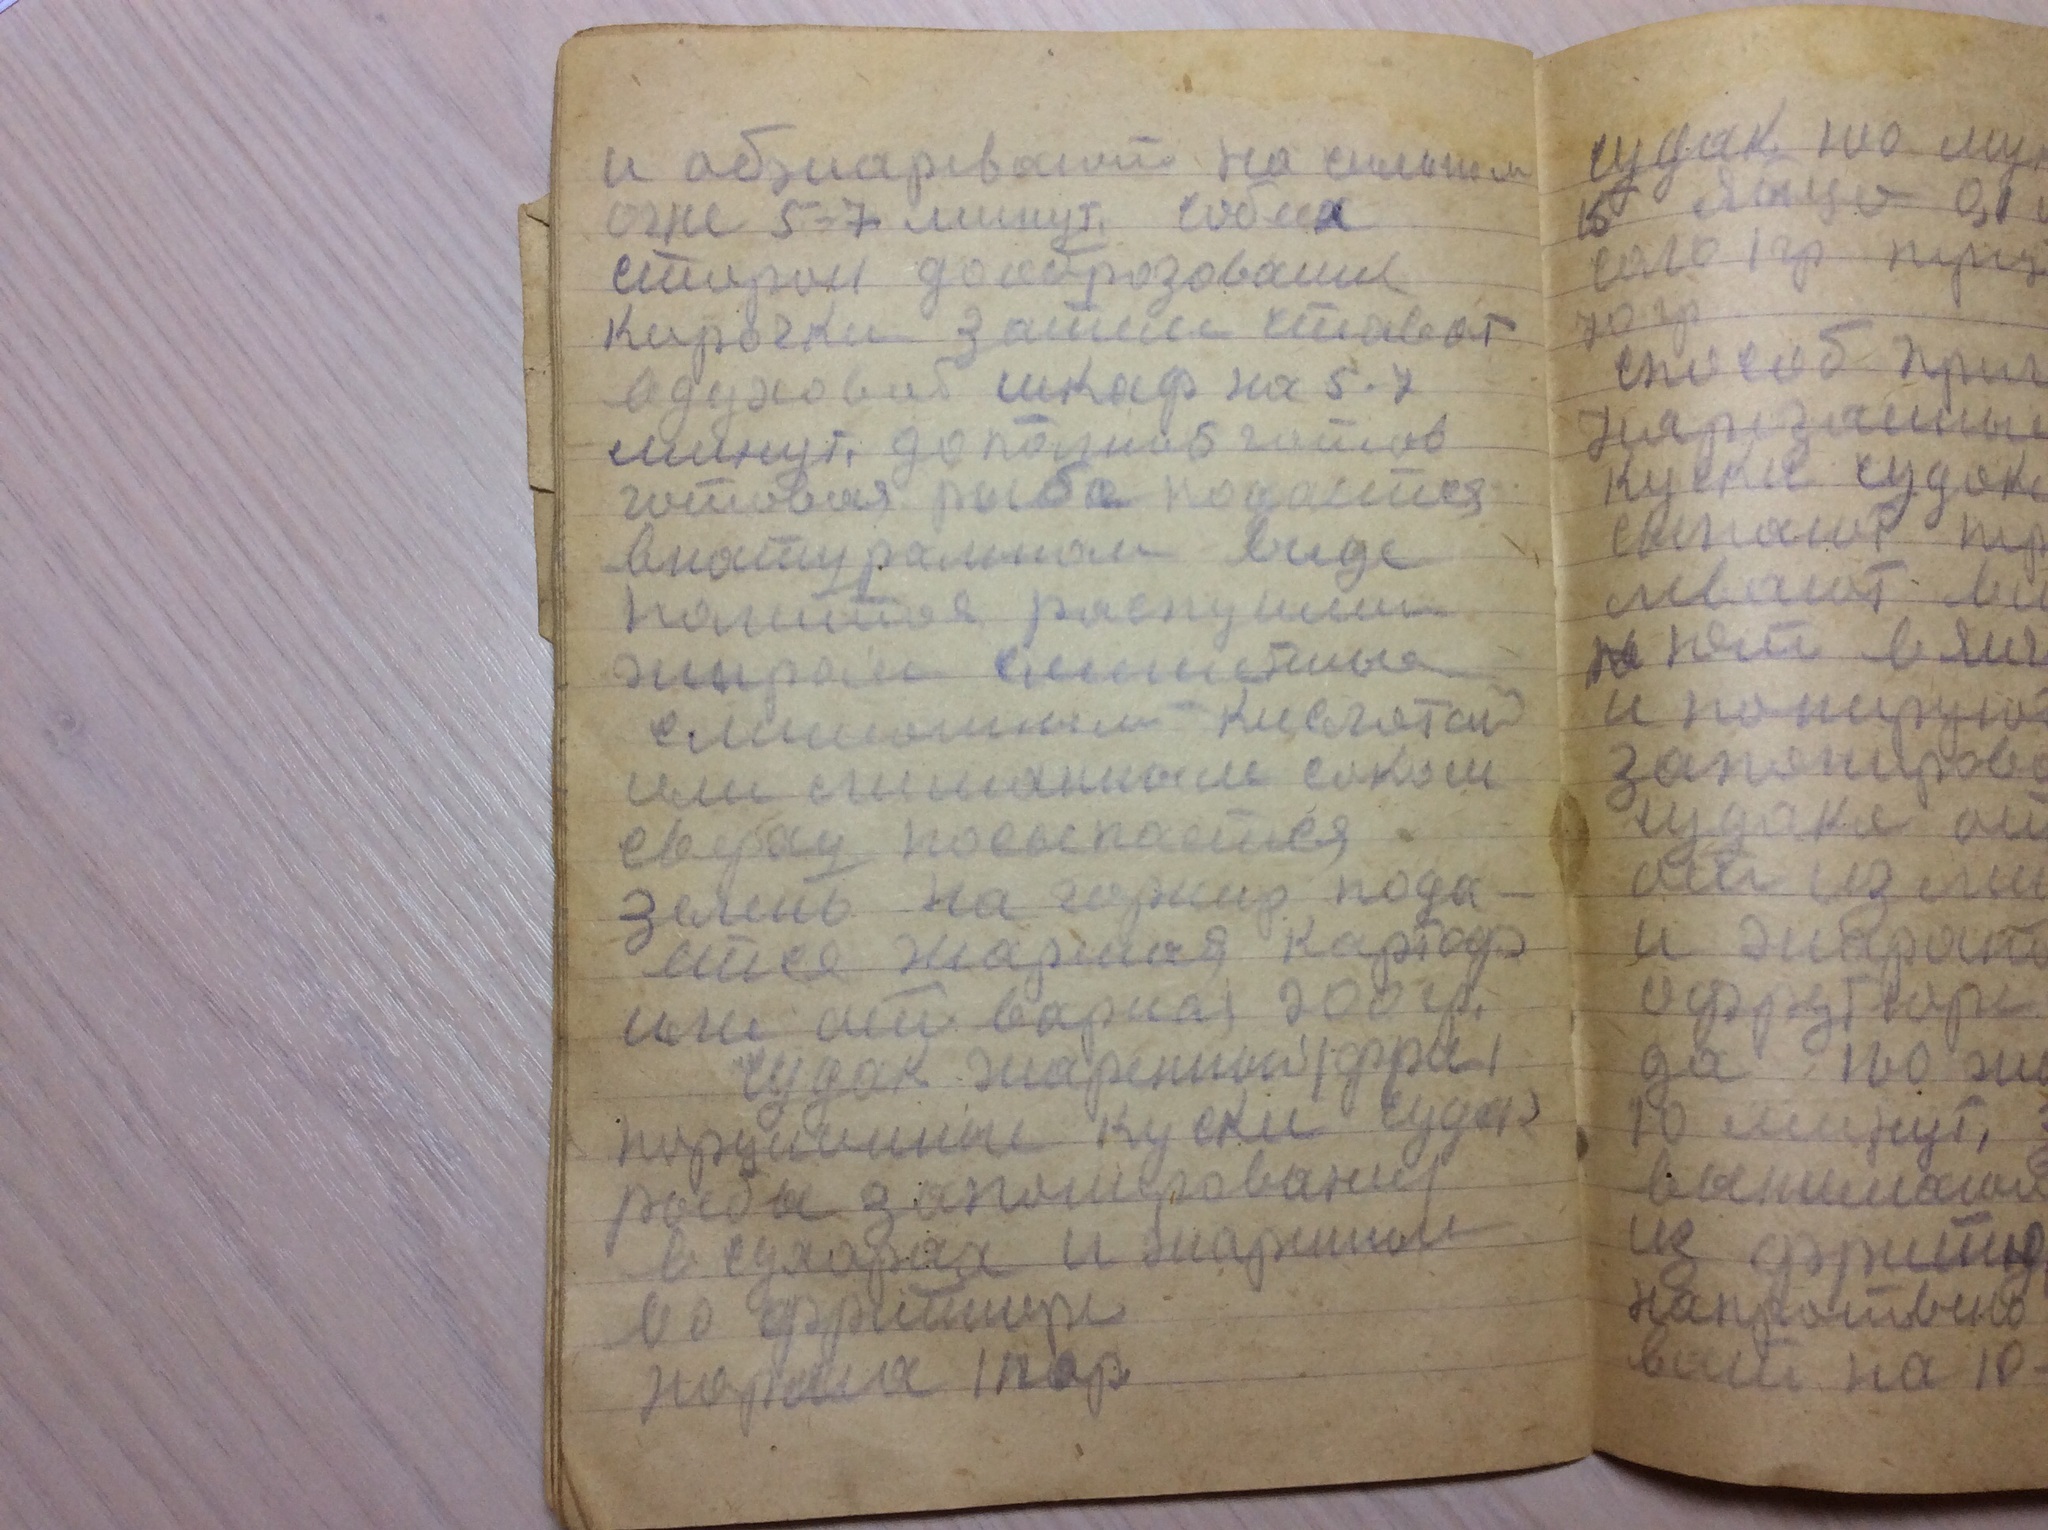 и обжаревают на сильном
огне 5-7 минут. собеих
сторон дооброзования
корочки затем ставят
вдуховой шкаф на 5-7
минут. до полной готов
готовая рыба подается
внатуральном виде
жиром
кислотой
или лимонным соком
сверху посыпается
зелень на горнир пода-
ется жареная картоф
или отварная 200 гр.
Судак жаренный фри
порционные куски судак
рыбы запонированы
в сухарях и жарином
во фритюре
норма 1 пор
судак 100 мук
15 яйцо
соло 1 гр
70 гр
способ приг
нарезанные
куски судака
сыпают
ливают
и понируют
запонирова
судака от
и жарят
офритюре
да 100
10 минут,
вынимают
из фритюр
напротвено
вят на 10-